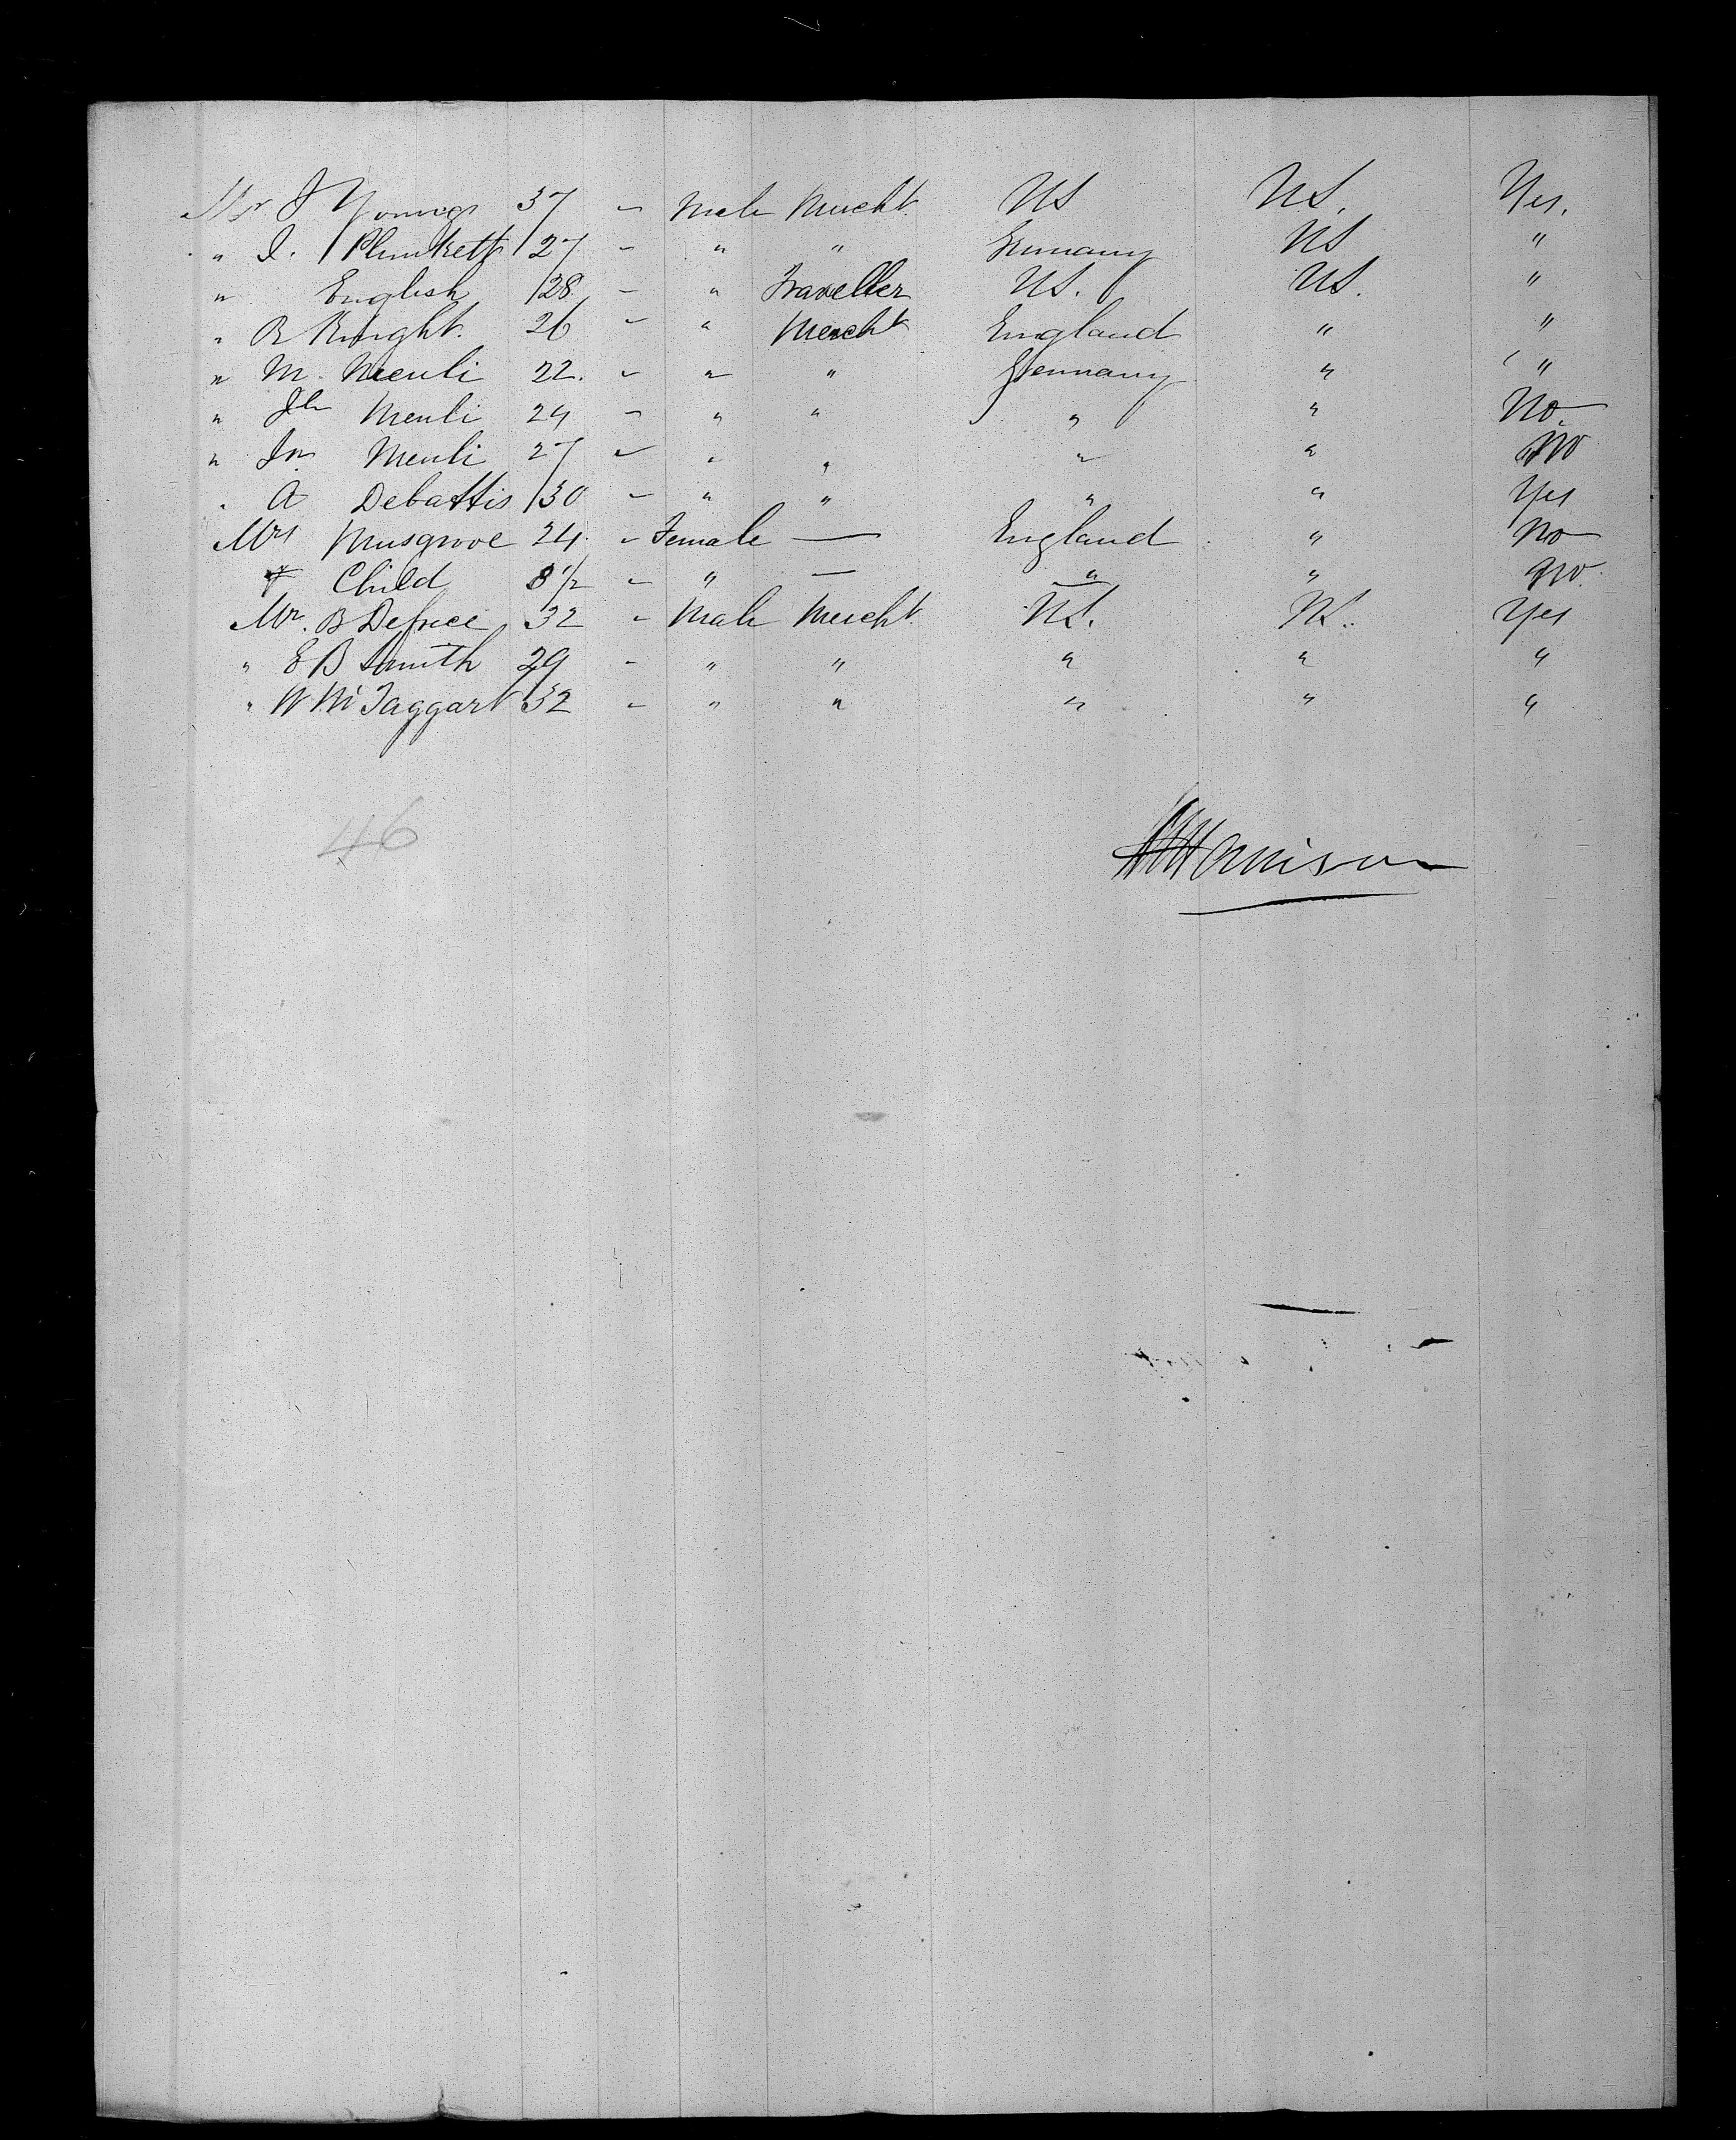 Mr J Youngs 37 - Male Mercht. US US. Yes.
" J. Plunkett 27 - " " Germany US "
" English 28 - " Traveller US. US. "
" B Knight. 26 - " Mercht England " "
" M. Meuli 22. - " " Germany " "
" Jh Meuli 24 - " " " " No
" Jn Meuli 27 - " " " " No
" A Debattis 30 - " " " " Yes
Mrs Musgrove 24 - Female — England " No
& Child 8 1/2 - " — " " No.
Mr. B Defrece 32 - Male Mercht. US. US. Yes
" E B Smith 29 - " " " " "
" W McTaggart 32 - " " " " "
46
Harrison